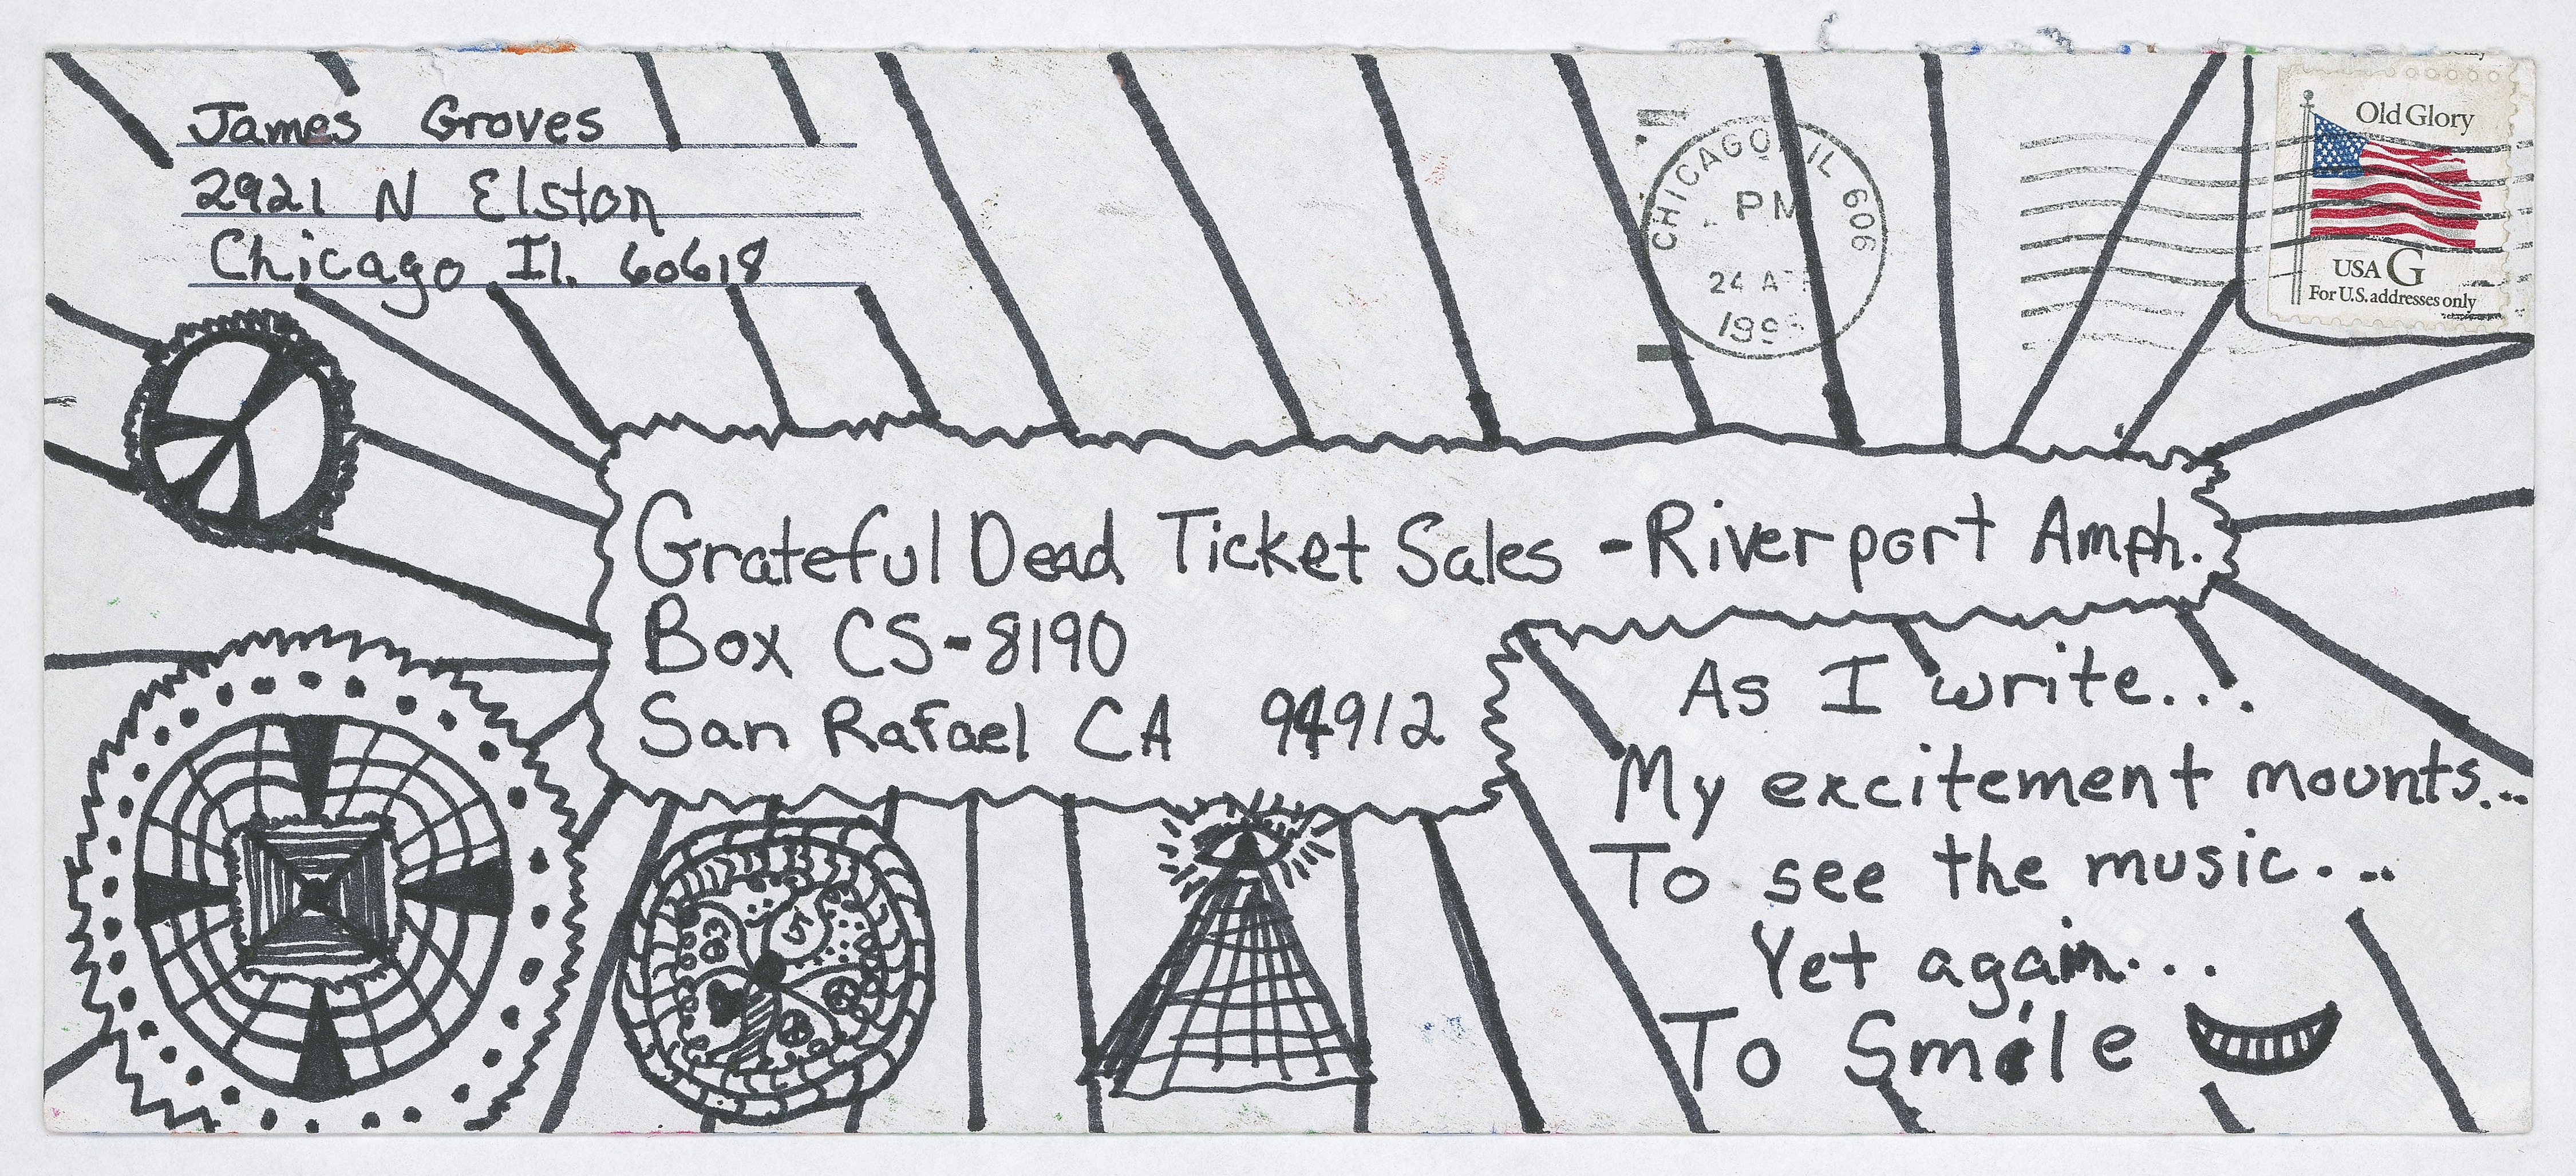 James Groves
2921 N Elston
Chicago Il. 60618
CHICAGO IL 606
PM
24
Old Glory
USA G
For U.S. addresses only
Grateful Dead Ticket Sales - Riverport Amph.
Box CS-8190
San Rafael CA 94912
As I write...
My excitement mounts...
To see the music...
Yet again...
To Smile